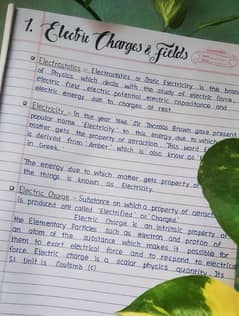 1. Electric Charges & Fields
Electrostatics :- Electrostatics or Static Electricity is the branch
of Physics which deals with the study of electric force,
electric field, electric potential, electric capacitance and
electric energy due to charges at rest.
Electricity :- In the year 1646 Sir Thomas Brown gave present
popular name 'Electricity' to this energy due to which
matter gets the property of attraction. This word
is derived from 'Amber' which is also known as
in Greek.
The energy due to which matter gets property of
the things is known as Electricity.
Electric Charge :- Substance on which a property of attrac
is produced are called "Electrified" or "Charged".
Electric Charge is an intrinsic property of
the Elementary Particles such as electron and proton of
an atom of the substance which makes it possible for
them to exert electrical force and to respond to electrical
force. Electric charge is a scalar physics quantity. Its
SI Unit is Coulomb (C).